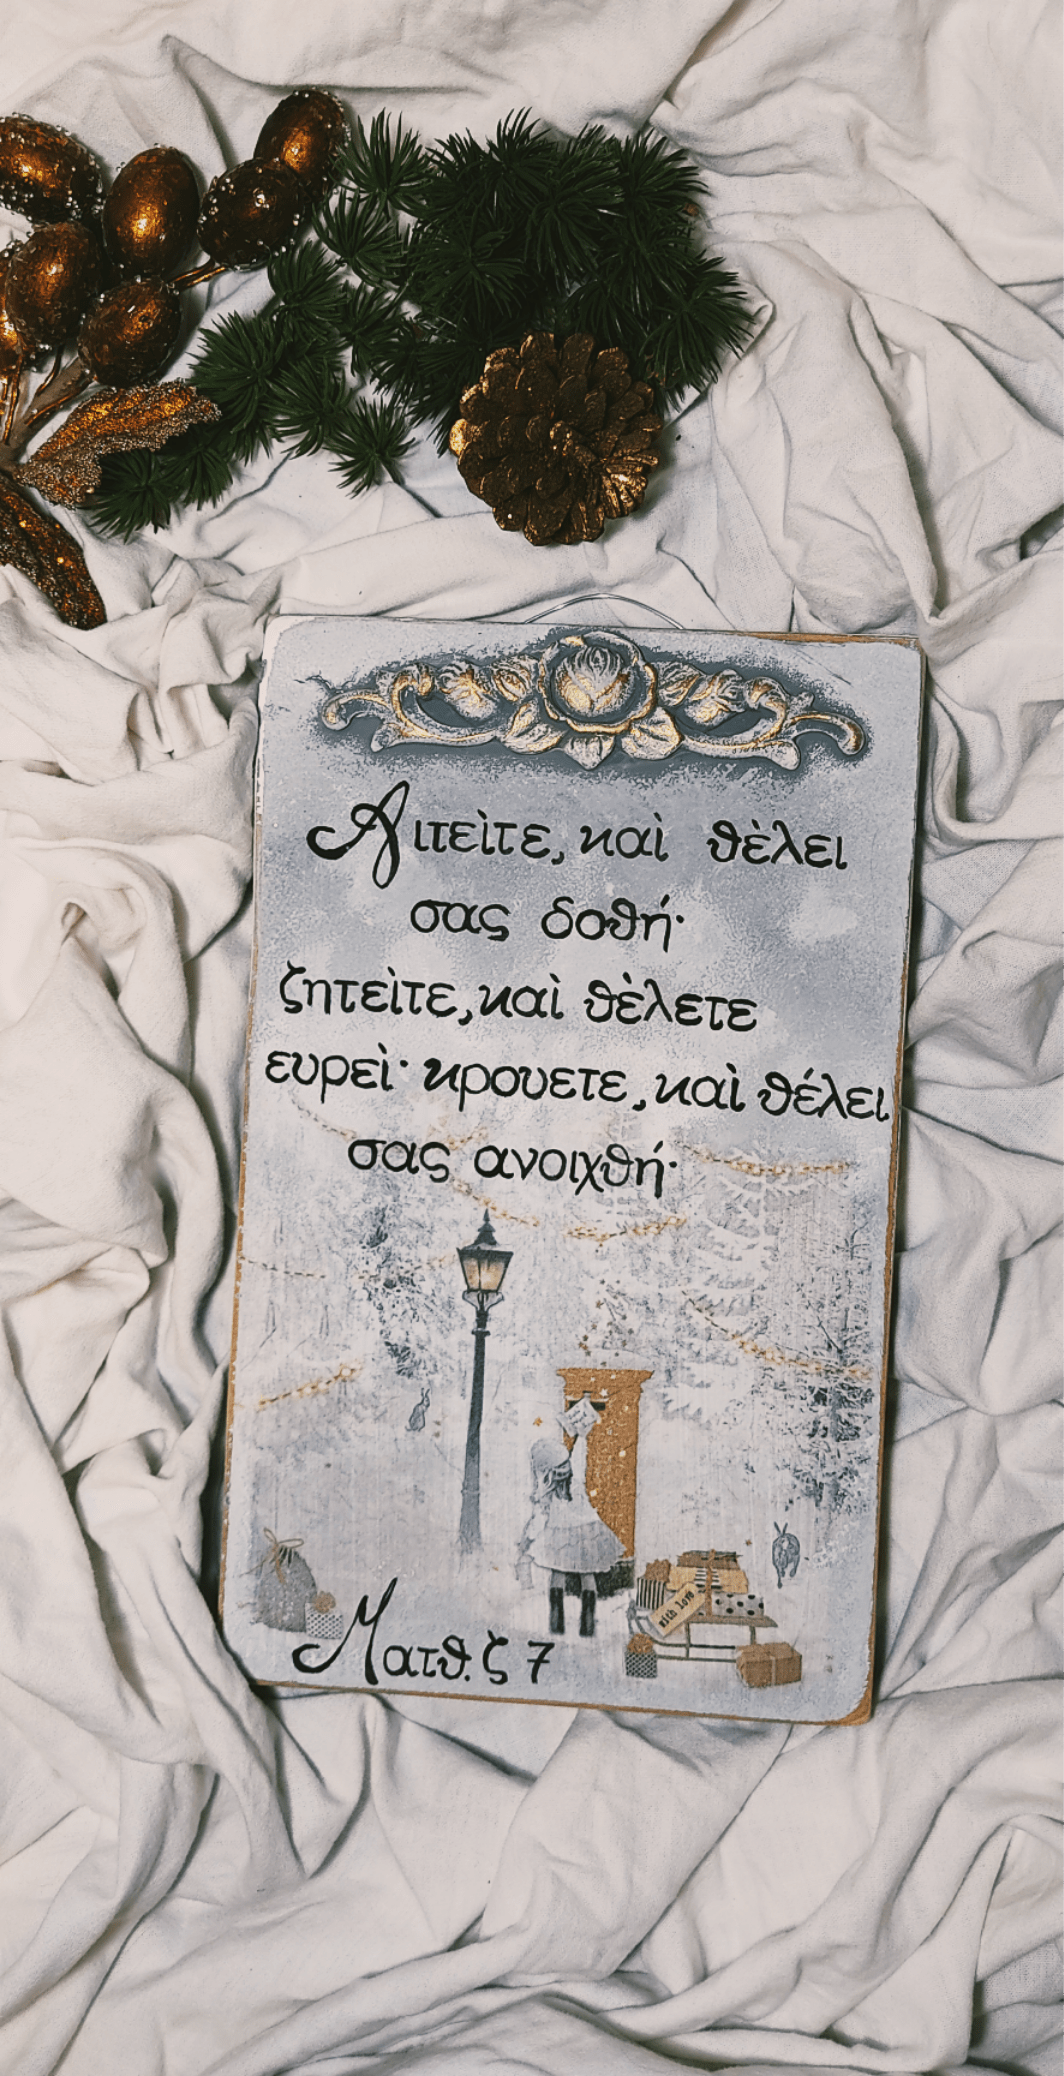 Αιτεὶτε, καὶ θὲλει
σας δοθή·
ζητεὶτε, καὶ θὲλετε
ευρεὶ· κρουετε, καὶ θέλει
σας ανοιχθή·
with love
Ματθ. ζ 7